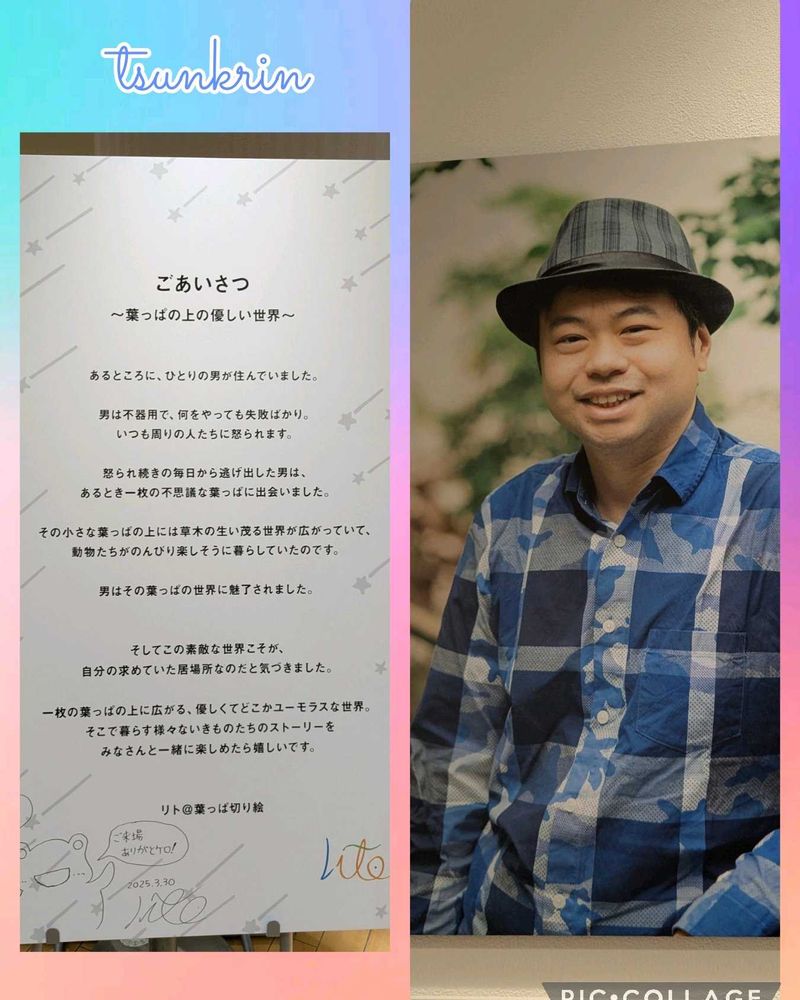 tsunkrin
ごあいさつ
～葉っぱの上の優しい世界～
あるところに、ひとりの男が住んでいました。
男は不器用で、何をやっても失敗ばかり。
いつも周りの人たちに怒られます。
怒られ続きの毎日から逃げ出した男は、
あるとき一枚の不思議な葉っぱに出会いました。
その小さな葉っぱの上には草木の生い茂る世界が広がっていて、
動物たちがのんびり楽しそうに暮らしていたのです。
男はその葉っぱの世界に魅了されました。
そしてこの素敵な世界こそが、
自分の求めていた居場所なのだと気づきました。
一枚の葉っぱの上に広がる、優しくてどこかユーモラスな世界。
そこで暮らす様々ないきものたちのストーリーを
みなさんと一緒に楽しめたら嬉しいです。
リト@葉っぱ切り絵
ご来場
ありがとケロ!
2025.3.30
Lito
Lito
PIC•COLLAGE